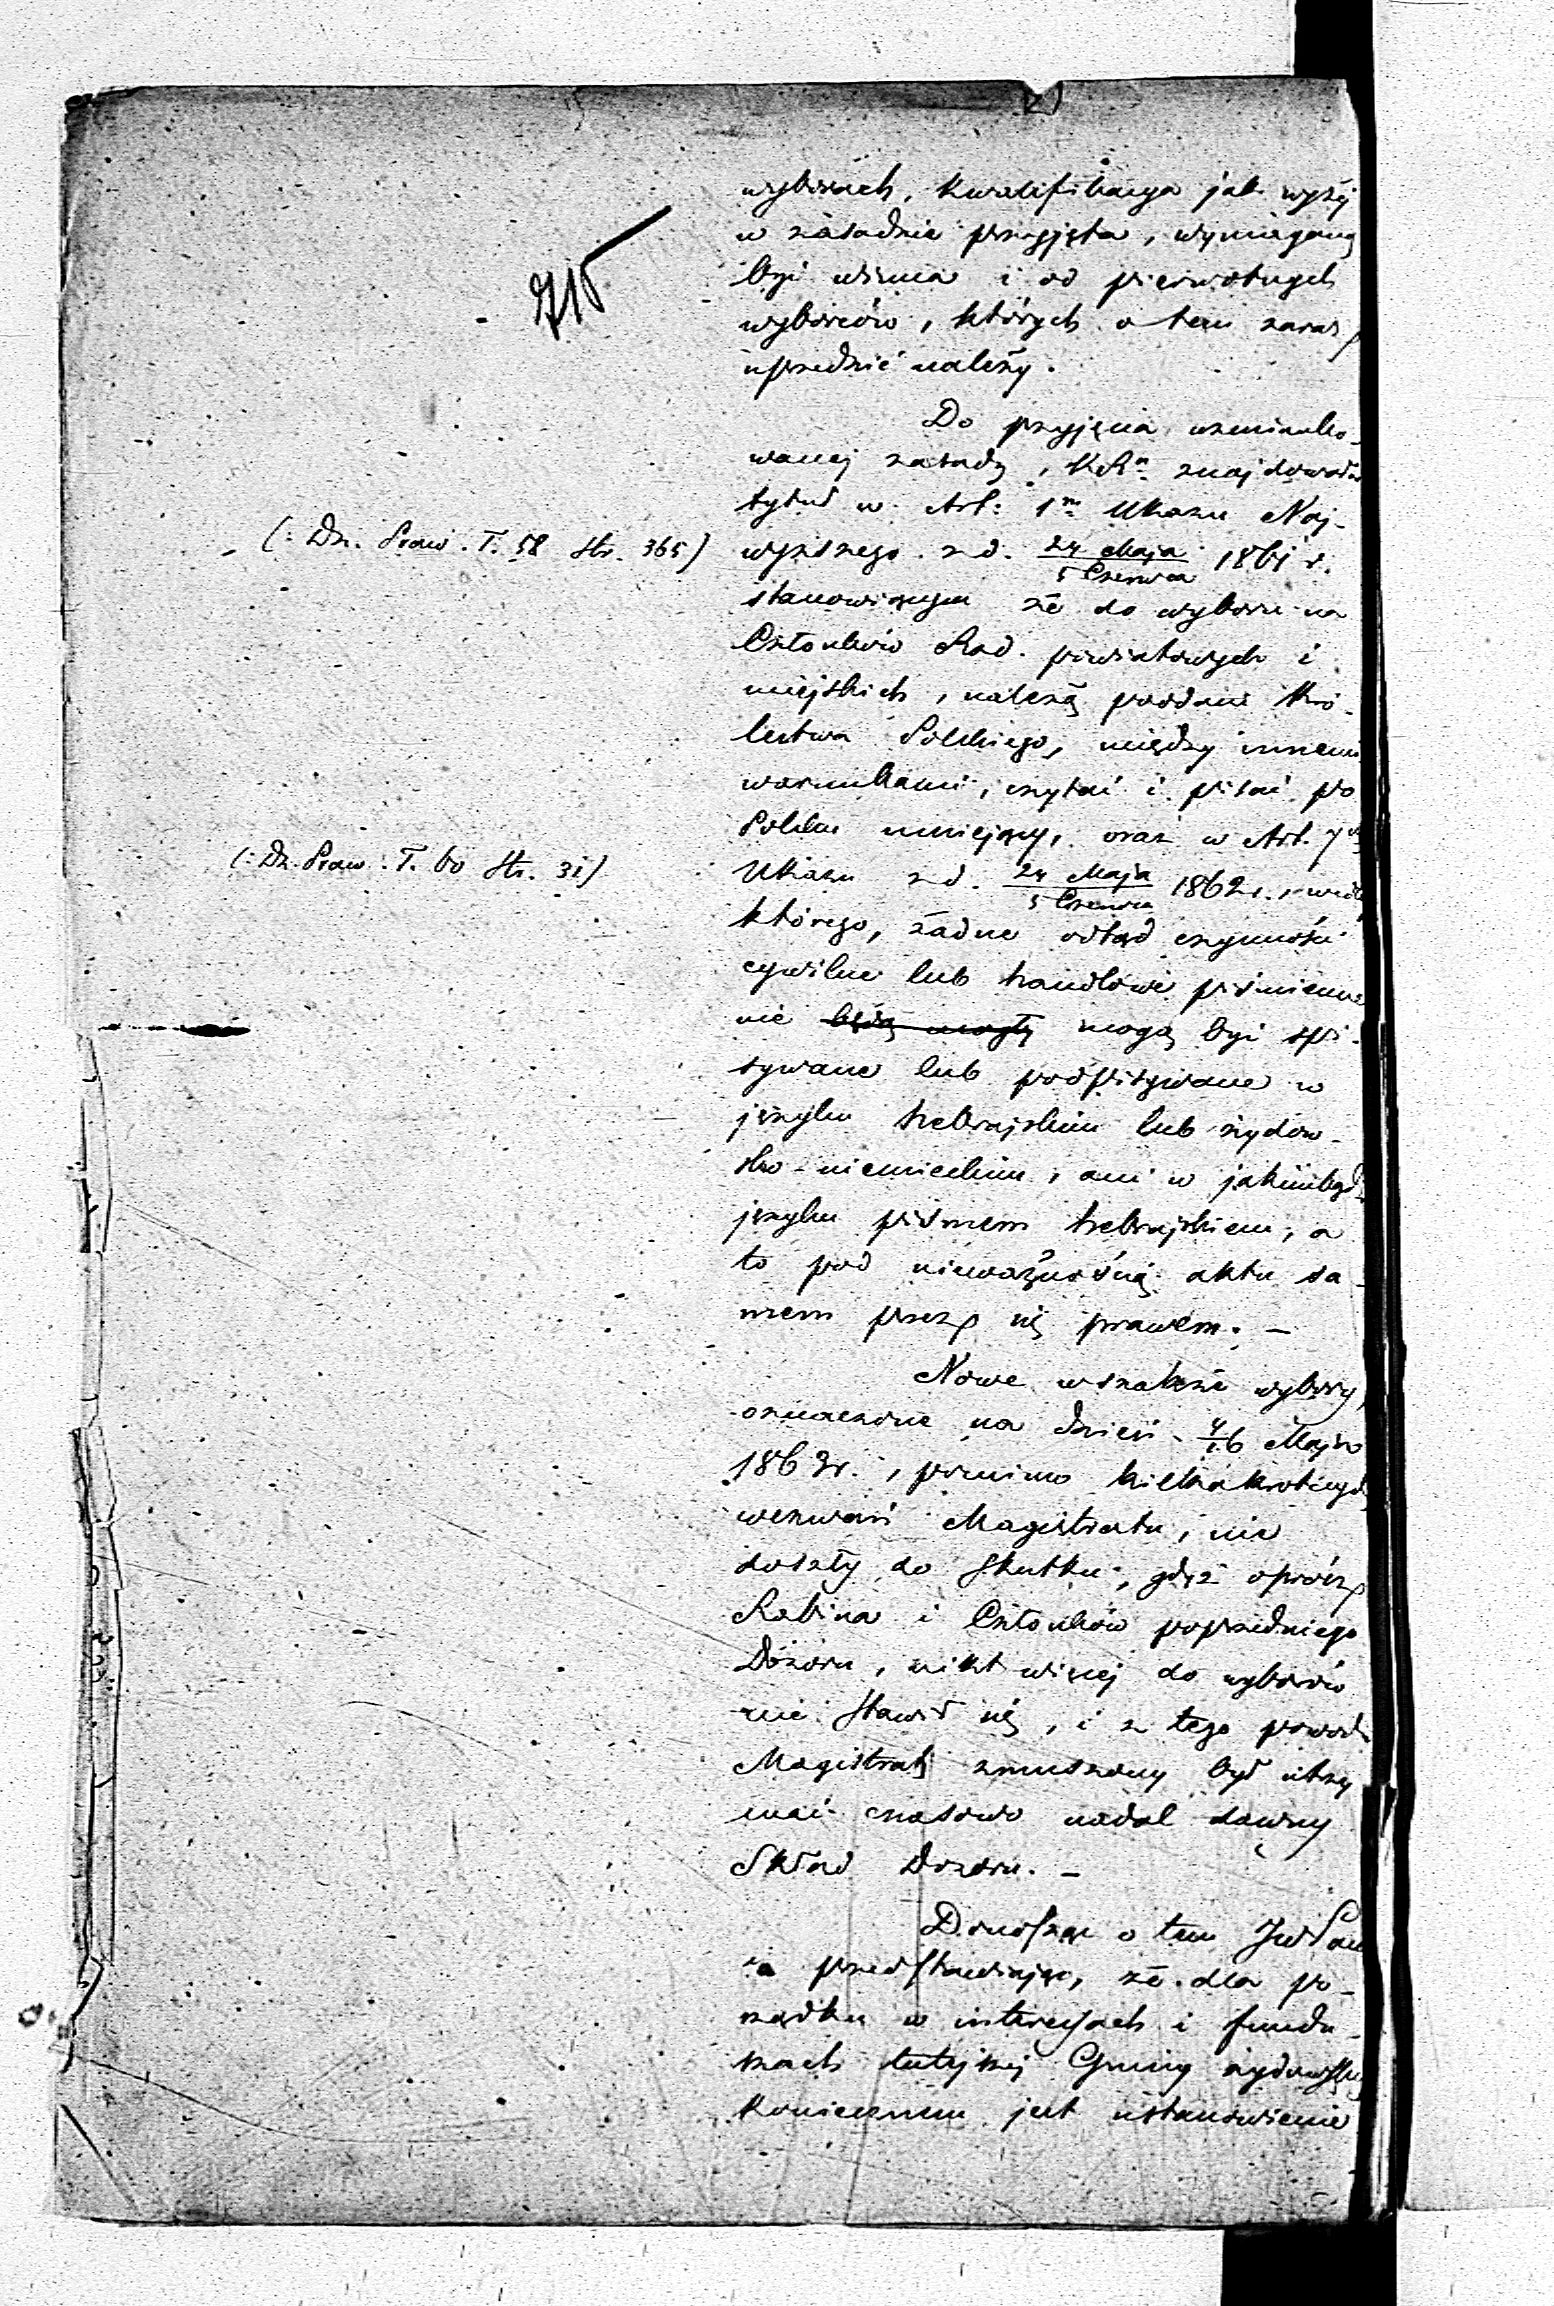 2)
715
wyborach, kwalifikacya jak wyżej
w zasadzie przyjęta, wymaganą
być winna i od pierwotnych
wyborców, których o tem zaraz
uprzedzić należy.
Do przyjęcia wzmianko-
wanej zasady, znajdował
tytuł w Art: 1m Ukazu Naj-
(: Dz. Praw. T. 58 str. 365)
wyższego z d. 24 Maja / 5 Czerwca 1861 r.
stanowiącym że do wyboru na
Członków Rad powiatowych i
miejskich, należą poddani Kró-
lestwa Polskiego, między innemi
warunkami, czytać i pisać po
Polsku umiejący, oraz w Art. 7m
(: Dz. Praw. T. 60 str. 31)
Ukazu z d. 24 Maja / 5 Czerwca 1862 r., wedle
którego, żadne odtąd czynności
cywilne lub handlowe piśmienne
nie będą mogły mogą być spi-
sywane lub podpisywane w
języku hebrajskim lub żydow-
sko-niemieckim, ani w jakimbądź
języku pismem hebrajskiem, a
to pod nieważnością aktu sa-
mem przez się prawem. –
Nowe wszakże wybory,
oznaczone na dzień 4/16 Maja
1863 r., pomimo kilkakrotnych
wezwań Magistratu, nie
doszły do skutku, gdyż oprócz
Rabina i Członków poprzedniego
Dozoru, nikt więcej do wyborów
nie stawił się, i z tego powodu
Magistrat zmuszony był utrzy
mać czasowo nadal dawny
Skład Dozoru. –
Donosząc o tem JW Pan
i przedstawiając, że dla po-
rządku w interesach i fundu-
szach tutejszej Gminy żydowskiej
koniecznem jest ustanowienie